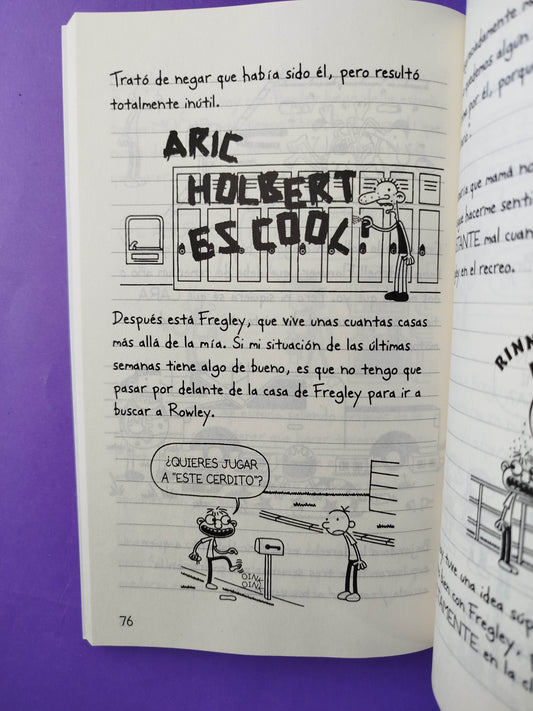 Trató de negar que había sido él, pero resultó
totalmente inútil.
ARIC
HOLBERT
ES COOL!
Después está Fregley, que vive unas cuantas casas
más allá de la mía. Si mi situación de las últimas
semanas tiene algo de bueno, es que no tengo que
pasar por delante de la casa de Fregley para ir a
buscar a Rowley.
¿QUIERES JUGAR
A "ESTE CERDITO"?
OINK
OINK
76
por él, porque
que mamá no
hacerme senti
mal cuan
en el recreo.
RINN
tuve una idea súp
con Fregley.
en la c